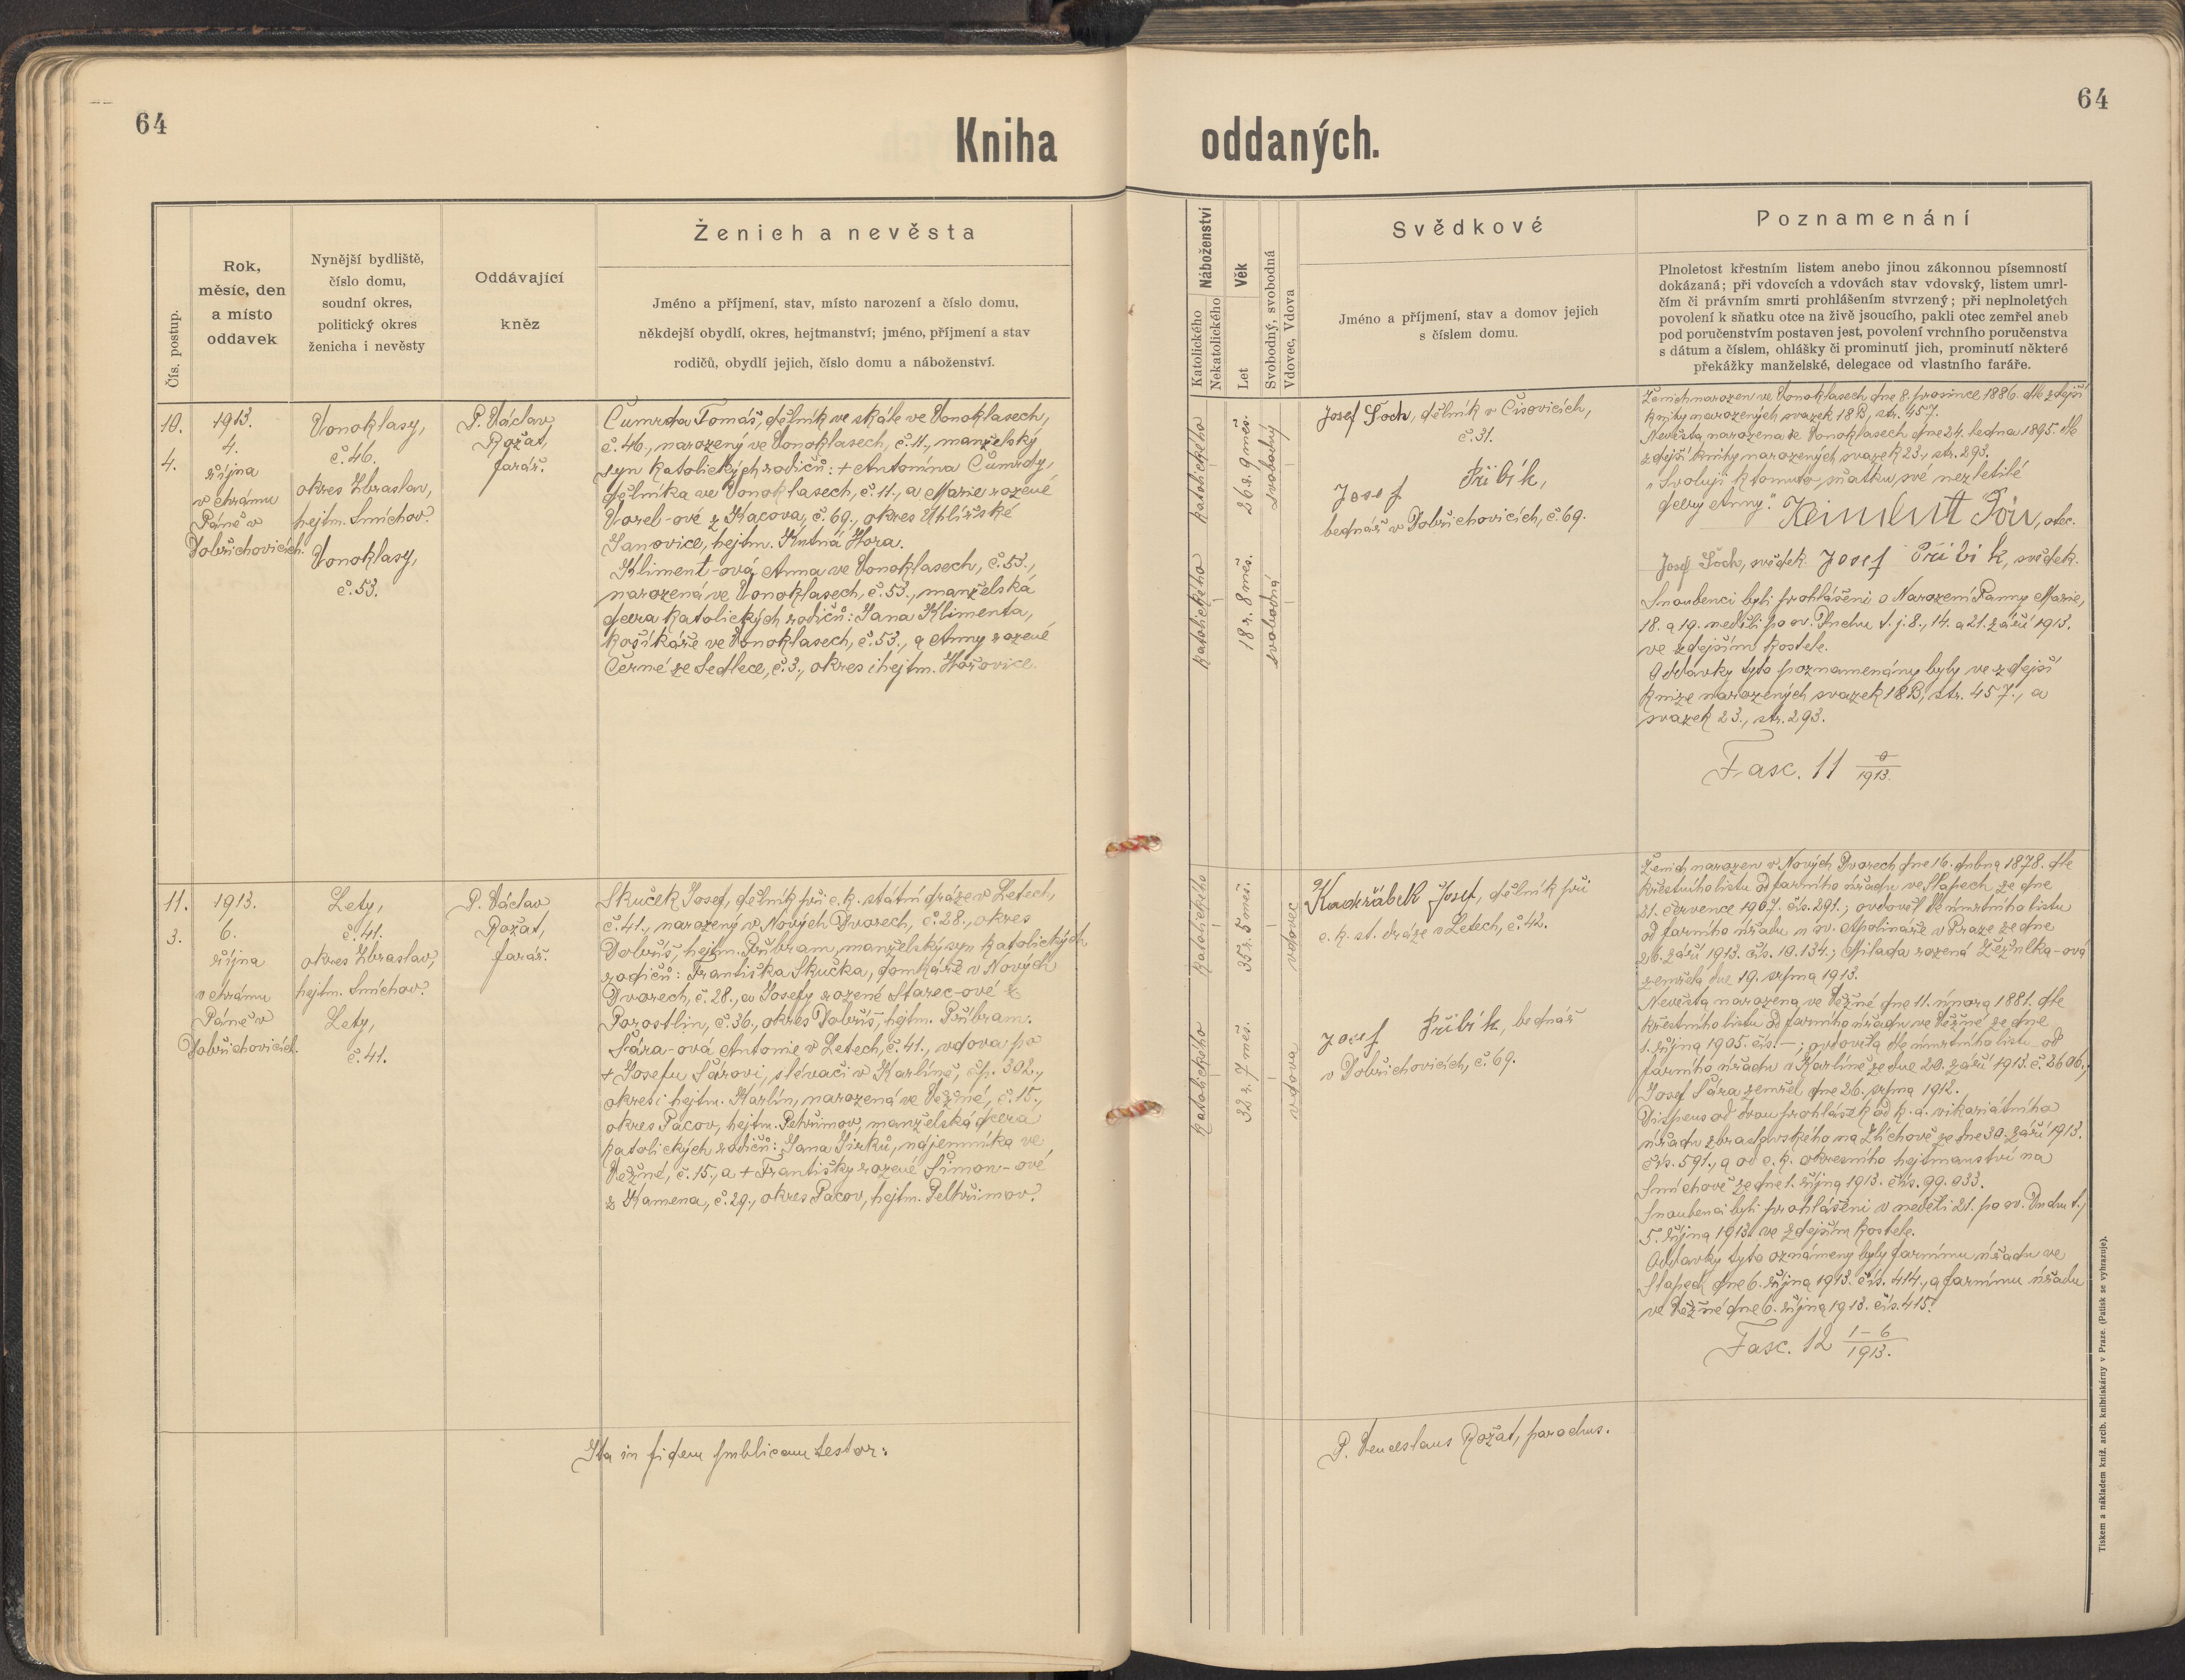 64
64
Kniha oddaných.
Čís. postup.
Rok,
měsíc, den
a místo
oddavek
Nynější bydliště,
číslo domu,
soudní okres,
politický okres
ženicha i nevěsty
Oddávající
kněz
Ženich a nevěsta
Jméno a příjmení, stav, místo narození a číslo domu,
někdejší obydlí, okres, hejtmanství; jméno, příjmení a stav
rodičů, obydlí jejich, číslo domu a náboženství.
Náboženství
Katolického
Nekatolického
Věk
Let
Svobodný, svobodná
Vdovec, Vdova
Svědkové
Jméno a příjmení, stav a domov jejich
s číslem domu.
Poznamenání
Plnoletost křestním listem anebo jinou zákonnou písemností
dokázaná; při vdovcích a vdovách stav vdovský, listem umrl-
čím či právním smrti prohlášením stvrzený; při neplnoletých
povolení k sňatku otce na živě jsoucího, pakli otec zemřel aneb
pod poručenstvím postaven jest, povolení vrchního poručenstva
s dátum a číslem, ohlášky či prominutí jich, prominutí některé
překážky manželské, delegace od vlastního faráře.
10.
4.
1913.
4.
října
v chrámu
Páně v
Dobřichovicích.
Vonoklasy,
č. 46.
okres Zbraslav,
hejtm. Smíchov.
Vonoklasy,
č. 53.
P. Václav
Rožát,
farář.
Čumrda Tomáš, dělník ve skále ve Vonoklasech,
č. 46., narozený ve Vonoklasech, č. 11., manželský
syn katolických rodičů: + Antonína Čumrdy,
dělníka ve Vonoklasech, č. 11., a Marie rozené
Vorel-ové z Kácova, č. 69., okres Uhlířské
Janovice, hejtm. Kutná Hora.
Kliment-ová Anna ve Vonoklasech, č. 53.,
narozená ve Vonoklasech, č. 53., manželská
dcera katolických rodičů: Jana Klimenta,
košíkáře ve Vonoklasech, č. 53., a Anny rozené
Černé ze Sedlece, č. 3., okres i hejtm. Hořovice.
katolického
26 r. 9 měs.
svobodný
katolického
18 r. 8 měs.
svobodná
Josef Šoch, dělník v Čisovicích,
č. 31.
Josef Přibík,
bednář v Dobřichovicích, č. 69.
Ženich narozen ve Vonoklasech dne 8. prosince 1886. dle zdejší
knihy narozených svazek 18 B, str. 457.
Nevěsta narozena ve Vonoklasech dne 24. ledna 1895. dle
zdejší knihy narozených svazek 23., str. 293.
"Svoluji k tomuto sňatku své nezletilé
dcery Anny." Kliment Jan, otec.
Josef Šoch, svědek. Josef Přibík, svědek.
Snoubenci byli prohlášeni o Narození Panny Marie,
18. a 19. neděli po sv. Duchu t. j. 8., 14. a 21. září 1913.
ve zdejším kostele.
Oddavky tyto poznamenány byly ve zdejší
knize narozených svazek 18 B, str. 457., a
svazek 23., str. 293.
Fasc. 11 0/1913.
11.
3.
1913.
6.
října
v chrámu
Páně v
Dobřichovicích.
Lety,
č. 41.
okres Zbraslav,
hejtm. Smíchov.
Lety,
č. 41.
P. Václav
Rožát,
farář.
Skuček Josef, dělník při c. k. státní dráze v Letech,
č. 41., narozený v Nových Dvorech, č. 28., okres
Dobříš, hejtm. Příbram, manželský syn katolických
rodičů: Františka Skučka, domkáře v Nových
Dvorech, č. 28., a Josefy rozené Starec-ové z
Porostlin, č. 36., okres Dobříš, hejtm. Příbram.
Šára-ová Antonie v Letech, č. 41., vdova po
+ Josefu Šárovi, slévači v Karlíně, čp. 302.,
okres i hejtm. Karlín, narozená ve Věžné, č. 15.,
okres Pacov, hejtm. Pelhřimov, manželská dcera
katolických rodičů: Jana Jirků, nájemníka ve
Věžné, č. 15., a + Františky rozené Šimon-ové
z Kamena, č. 29., okres Pacov, hejtm. Pelhřimov.
katolického
35 r. 5 měs.
vdovec
katolického
32 r. 7 měs.
vdova
Kadeřábek Josef, dělník při
c. k. st. dráze v Letech, č. 42.
Josef Přibík, bednář
v Dobřichovicích, č. 69.
Ženich narozen v Nových Dvorech dne 16. dubna 1878. dle
křestního listu od farního úřadu ve Slapech ze dne
21. července 1907. čís. 291.; ovdověl dle úmrtního listu
od farního úřadu u sv. Apolináře v Praze ze dne
26. září 1913. čís. 10.134.; Milada rozená
zemřela dne 19. srpna 1913.
Nevěsta narozena ve Věžné dne 11. února 1881. dle
křestního listu od farního úřadu ve Věžné ze dne
1. října 1905. čís. —; ovdověla dle úmrtního listu od
farního úřadu v Karlíně ze dne 20. září 1913. č. 2606.;
Josef Šára zemřel dne 26. srpna 1912.
Dispens od dvou prohlášek od k. a. vikariátního
úřadu zbraslavského na Zlíchově ze dne 30. září 1913.
čís. 591., a od c. k. okresního hejtmanství na
Smíchově ze dne 1. října 1913. čís. 99.033.
Snoubenci byli prohlášeni v neděli 21. po sv. Duchu t. j.
5. října 1913. ve zdejším kostele.
Oddavky tyto oznámeny byly farnímu úřadu ve
Slapech dne 6. října 1913. čís. 414., a farnímu úřadu
ve Věžné dne 6. října 1913. čís. 415.
Fasc. 12 1-6/1913.
Ita in fidem publicam testor:
P. Venceslaus Rožát, parochus.
Tiskem a nákladem kníž. arcib. knihtiskárny v Praze. (Patisk se vyhrazuje).